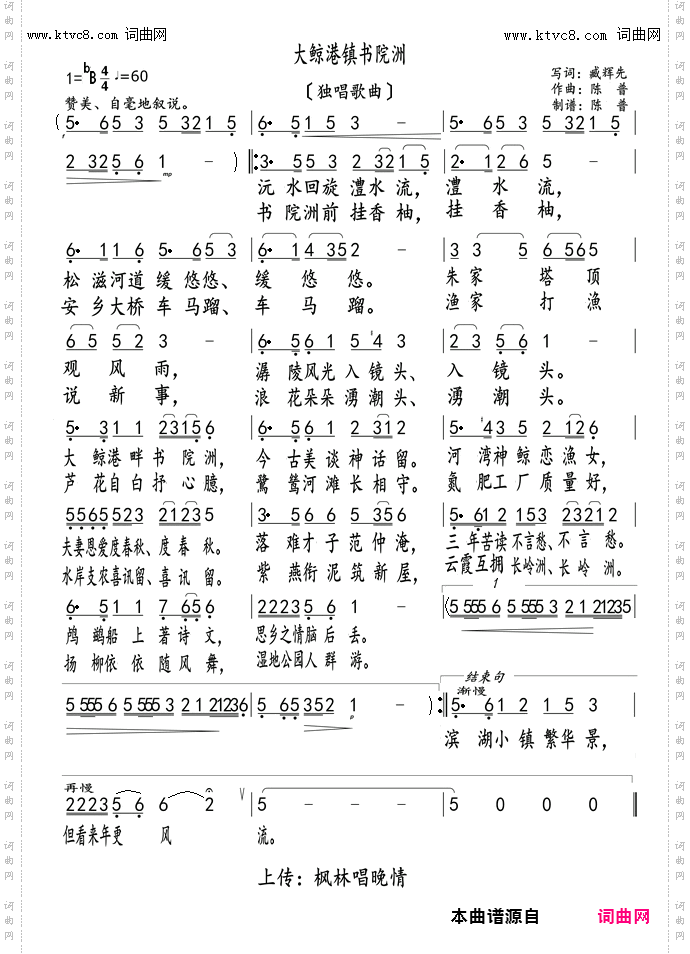 www.ktvc8.com 词曲网
www.ktvc8.com 词曲网
大鲸港镇书院洲
1=bB 4/4 ♩=60
〔独唱歌曲〕
写词：臧辉先
作曲：陈 普
制谱：陈 普
赞美、自毫地叙说。
(5· 6 5 3 5 3 2 1 5 | 6· 5 1 5 3 － | 5· 6 5 3 5 3 2 1 5 |
2 3 2 5 6 1 － ) 3· 5 5 3 2 3 2 1 5 | 2· 1 2 6 5 － |
mp
沅 水回旋 澧水 流， 澧 水 流，
书 院洲前 挂香 柚， 挂 香 柚，
6· 1 1 6 5· 6 5 3 | 6· 1 4 3 5 2 － | 3 3 5 6 5 6 5 |
松 滋河道 缓 悠悠、 缓 悠 悠。 朱 家 塔 顶
安 乡大桥 车 马蹓、 车 马 蹓。 渔 家 打 渔
6 5 5 2 3 － | 6· 5 6 1 5 #4 3 | 2 3 5 6 1 － |
观 风 雨， 潺 陵风光 入 镜 头、 入 镜 头。
说 新 事， 浪 花朵朵 湧 潮 头、 湧 潮 头。
5· 3 1 1 2 3 1 5 6 | 6· 5 6 1 2 3 1 2 | 5· #4 3 5 2 1 2 6 |
大 鲸港畔 书 院 洲， 今 古美 谈 神 话 留。 河 湾神 鲸 恋 渔 女，
芦 花自白 抒 心 臆， 鹭 鸶河 滩 长 相 守。 氮 肥工 厂 质 量 好，
5 5 6 5 5 2 3 2 1 2 3 5 | 3· 5 6 6 5 3 5 6 | 5· 6 1 2 1 5 3 2 3 2 1 2 |
夫妻恩爱度春秋、度 春 秋。 落 难才 子 范 仲 淹， 三 年苦读 不言愁、不 言 愁。
水岸支农喜讯留、喜 讯 留。 紫 燕衔 泥 筑 新 屋， 云霞互拥 长岭洲、长 岭 洲。
6· 5 1 1 7 6 5 6 | 2 2 2 3 5 6 1 － | (5 5 5 5 6 5 5 5 5 3 2 1 2 1 2 3 5
1
鸬 鹚船 上 著 诗 文， 思乡之情脑 后 丢。
扬 柳依 依 随 风 舞， 湿地公园人 群 游。
结束句
渐慢
5 5 5 5 6 5 5 5 5 3 2 1 2 1 2 3 6 | 5 6 5 3 5 2 1 － ) 5· 6 1 2 1 5 3 |
p
滨 湖小 镇 繁华 景，
再慢
2 2 2 3 5 6 6 2 ∨ | 5 － － － | 5 0 0 0
但看来年更 风 流。
上传：枫林唱晚情
本曲谱源自 词曲网